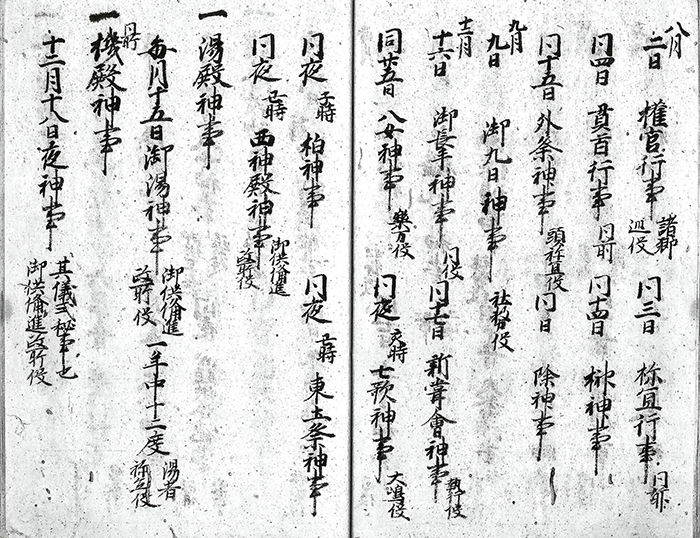 八月
二日 権官行事 諸郡巡役 同三日 祢宜行事 同前
同四日 貫首行事 同前 同十四日 榊神事
同十五日 外祭神事 頭祢宜役 同日 除神事
九月
九日 御九日神事 社務役
十二月
十六日 御長年神事 同役 同十七日 新嘗會神事 執行役
同廿五日 八女神事 樂方役 同夜 亥時 七歌神事 大嶋役
同夜 子時 柏神事 同夜 丑時 東土祭神事
同夜 丑時 西神殿神事 御供備進政所役
一 湯殿神事
毎月十五日御湯神事 御供備進政所役 一年中十二度 湯者祢宜役
一 機殿神事
十二月十八日夜神事 其儀式秘事也 御供備進政所役